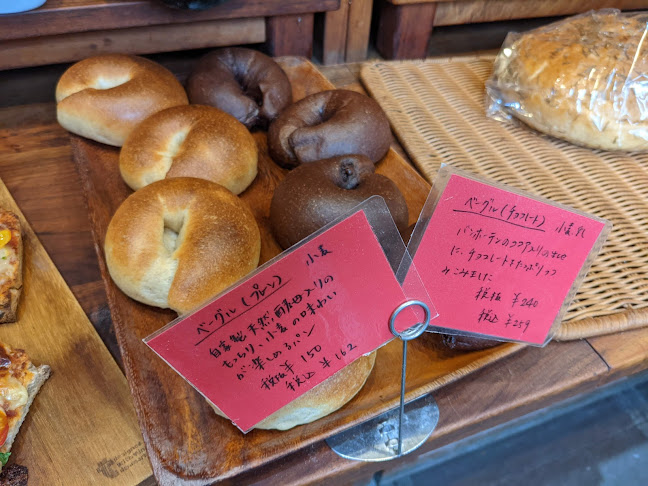 ベーグル(プレーン) 小麦
自家製天然酵母入りの
もっちり、小麦の味わい
が楽しめるパン
税抜 ¥150
税込 ¥162
ベーグル(チョコレート) 小麦乳
バンホーテンのココア入りの生地
に、チョコレートをたっぷりつつ
みこみました
税抜 ¥240
税込 ¥259